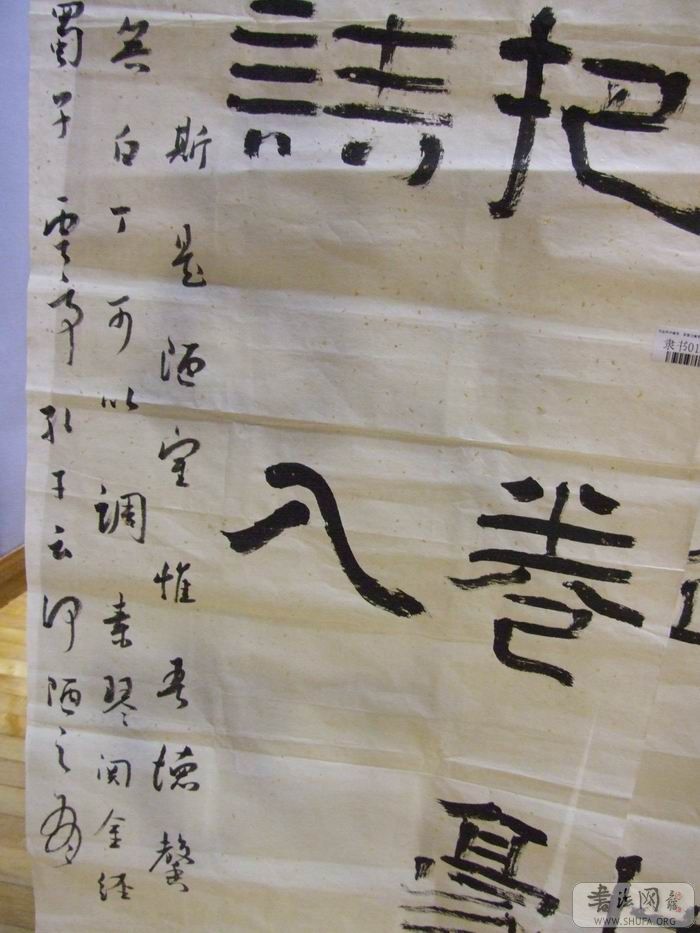 把卷
入
斯是陋室惟吾德馨
無白丁可以調素琴阅金经
蜀子雲亭孔子云何陋之有
隶书01
书法网
WWW.SHUFA.ORG